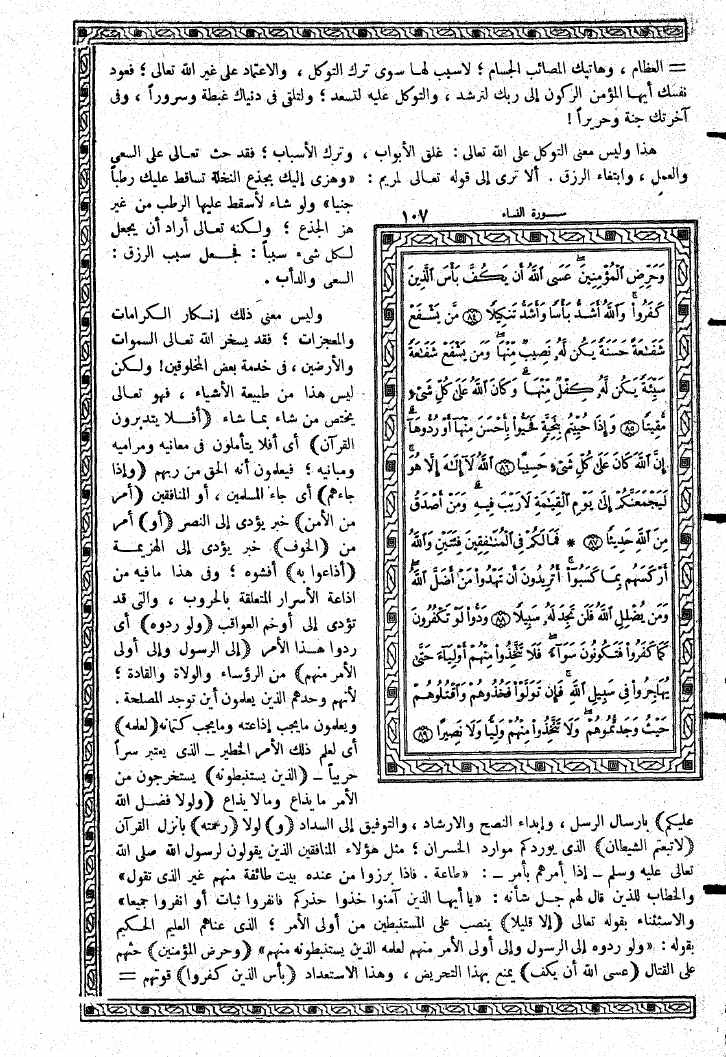 = العظام ، وهاتيك المصائب الجسام ؛ لاسبب لها سوى ترك التوكل ، والاعتماد على غير الله تعالى ؛ فعود
نفسك أيها المؤمن الركون إلى ربك لترشد ، والتوكل عليه لتسعد ؛ ولتلقى فى دنياك غبطة وسروراً ، وفى
آخرتك جنة وحريراً !
هذا وليس معنى التوكل على الله تعالى : غلق الأبواب ، وترك الأسباب ؛ فقد حث تعالى على السعى
والعمل ، وابتغاء الرزق . ألا ترى إلى قوله تعالى لمريم : «وهزى إليك بجذع النخلة تساقط عليك رطباً
جنيا» ولو شاء لأسقط عليها الرطب من غير
هز الجذع ؛ ولكنه تعالى أراد أن يجعل
لكل شىء سبباً : فجعل سبب الرزق :
السعى والدأب .
وليس معنى ذلك إنكار الكرامات
والمعجزات ؛ فقد يسخر الله تعالى السموات
والأرضين ، فى خدمة بعض المخلوقين! ولكن
ليس هذا من طبيعة الأشياء ، فهو تعالى
يختص من شاء بما شاء (أفلا يتدبرون
القرآن) أى أفلا يتأملون فى معانيه ومراميه
ومبانيه ؛ فيعلمون أنه الحق من ربهم (وإذا
جاءهم) أى جاء المسلمين ، أو المنافقين (أمر
من الأمن) خبر يؤدى إلى النصر (أو) أمر
من (الخوف) خبر يؤدى إلى الهزيمة
(أذاعوا به) أفشوه ؛ وفى هذا مافيه من
اذاعة الأسرار المتعلقة بالحروب ، والتى قد
تؤدى إلى أوخم العواقب (ولو ردوه) أى
ردوا هذا الأمر (إلى الرسول وإلى أولى
الأمر منهم) من الرؤساء والولاة والقادة ؛
لأنهم وحدهم الذين يعلمون أين توجد المصلحة .
ويعلمون مايجب إذاعته ومايجب كتمانه (لعلمه)
أى لعلم ذلك الأمر الخطير - الذى يعتبر سراً
حربياً - (الذين يستنبطونه) يستخرجون من
الأمر مايذاع ومالا يذاع (ولولا فضل الله
سورة النساء ١٠٧
وَحَرِّضِ ٱلْمُؤْمِنِينَ ۖ عَسَى ٱللَّهُ أَن يَكُفَّ بَأْسَ ٱلَّذِينَ
كَفَرُوا۟ ۚ وَٱللَّهُ أَشَدُّ بَأْسًا وَأَشَدُّ تَنكِيلًا ٨٤ مَّن يَشْفَعْ
شَفَـٰعَةً حَسَنَةً يَكُن لَّهُۥ نَصِيبٌ مِّنْهَا ۖ وَمَن يَشْفَعْ شَفَـٰعَةً
سَيِّئَةً يَكُن لَّهُۥ كِفْلٌ مِّنْهَا ۗ وَكَانَ ٱللَّهُ عَلَىٰ كُلِّ شَىْءٍ
مُّقِيتًا ٨٥ وَإِذَا حُيِّيتُم بِتَحِيَّةٍ فَحَيُّوا۟ بِأَحْسَنَ مِنْهَآ أَوْ رُدُّوهَآ ۗ
إِنَّ ٱللَّهَ كَانَ عَلَىٰ كُلِّ شَىْءٍ حَسِيبًا ٨٦ ٱللَّهُ لَآ إِلَـٰهَ إِلَّا هُوَ ۚ
لَيَجْمَعَنَّكُمْ إِلَىٰ يَوْمِ ٱلْقِيَـٰمَةِ لَا رَيْبَ فِيهِ ۗ وَمَنْ أَصْدَقُ
مِنَ ٱللَّهِ حَدِيثًا ٨٧ * فَمَا لَكُمْ فِى ٱلْمُنَـٰفِقِينَ فِئَتَيْنِ وَٱللَّهُ
أَرْكَسَهُم بِمَا كَسَبُوٓا۟ ۚ أَتُرِيدُونَ أَن تَهْدُوا۟ مَنْ أَضَلَّ ٱللَّهُ ۖ
وَمَن يُضْلِلِ ٱللَّهُ فَلَن تَجِدَ لَهُۥ سَبِيلًا ٨٨ وَدُّوا۟ لَوْ تَكْفُرُونَ
كَمَا كَفَرُوا۟ فَتَكُونُونَ سَوَآءً ۖ فَلَا تَتَّخِذُوا۟ مِنْهُمْ أَوْلِيَآءَ حَتَّىٰ
يُهَاجِرُوا۟ فِى سَبِيلِ ٱللَّهِ ۚ فَإِن تَوَلَّوْا۟ فَخُذُوهُمْ وَٱقْتُلُوهُمْ
حَيْثُ وَجَدتُّمُوهُمْ ۖ وَلَا تَتَّخِذُوا۟ مِنْهُمْ وَلِيًّا وَلَا نَصِيرًا ٨٩
عليكم) بارسال الرسل ، وإبداء النصح والارشاد ، والتوفيق إلى السداد (و) لولا (رحمته) بانزل القرآن
(لاتبعتم الشيطان) الذى يوردكم موارد الخسران ؛ مثل هؤلاء المنافقين الذين يقولون لرسول الله صلى الله
تعالى عليه وسلم - إذا أمرهم بأمر - : «طاعة . فاذا برزوا من عنده بيت طائفة منهم غير الذى تقول»
والخطاب للذين قال لهم جل شأنه : «ياأيها الذين آمنوا خذوا حذركم فانفروا ثبات أو انفروا جميعا»
والاستثناء بقوله تعالى (إلا قليلا) ينصب على المستنبطين من أولى الأمر ؛ الذى عناهم العليم الحكيم
بقوله : «ولو ردوه إلى الرسول وإلى أولى الأمر منهم لعلمه الذين يستنبطونه منهم» (وحرض المؤمنين) حثهم
على القتال (عسى الله أن يكف) يمنع بهذا التحريض ، وهذا الاستعداد (بأس الذين كفروا) قوتهم =